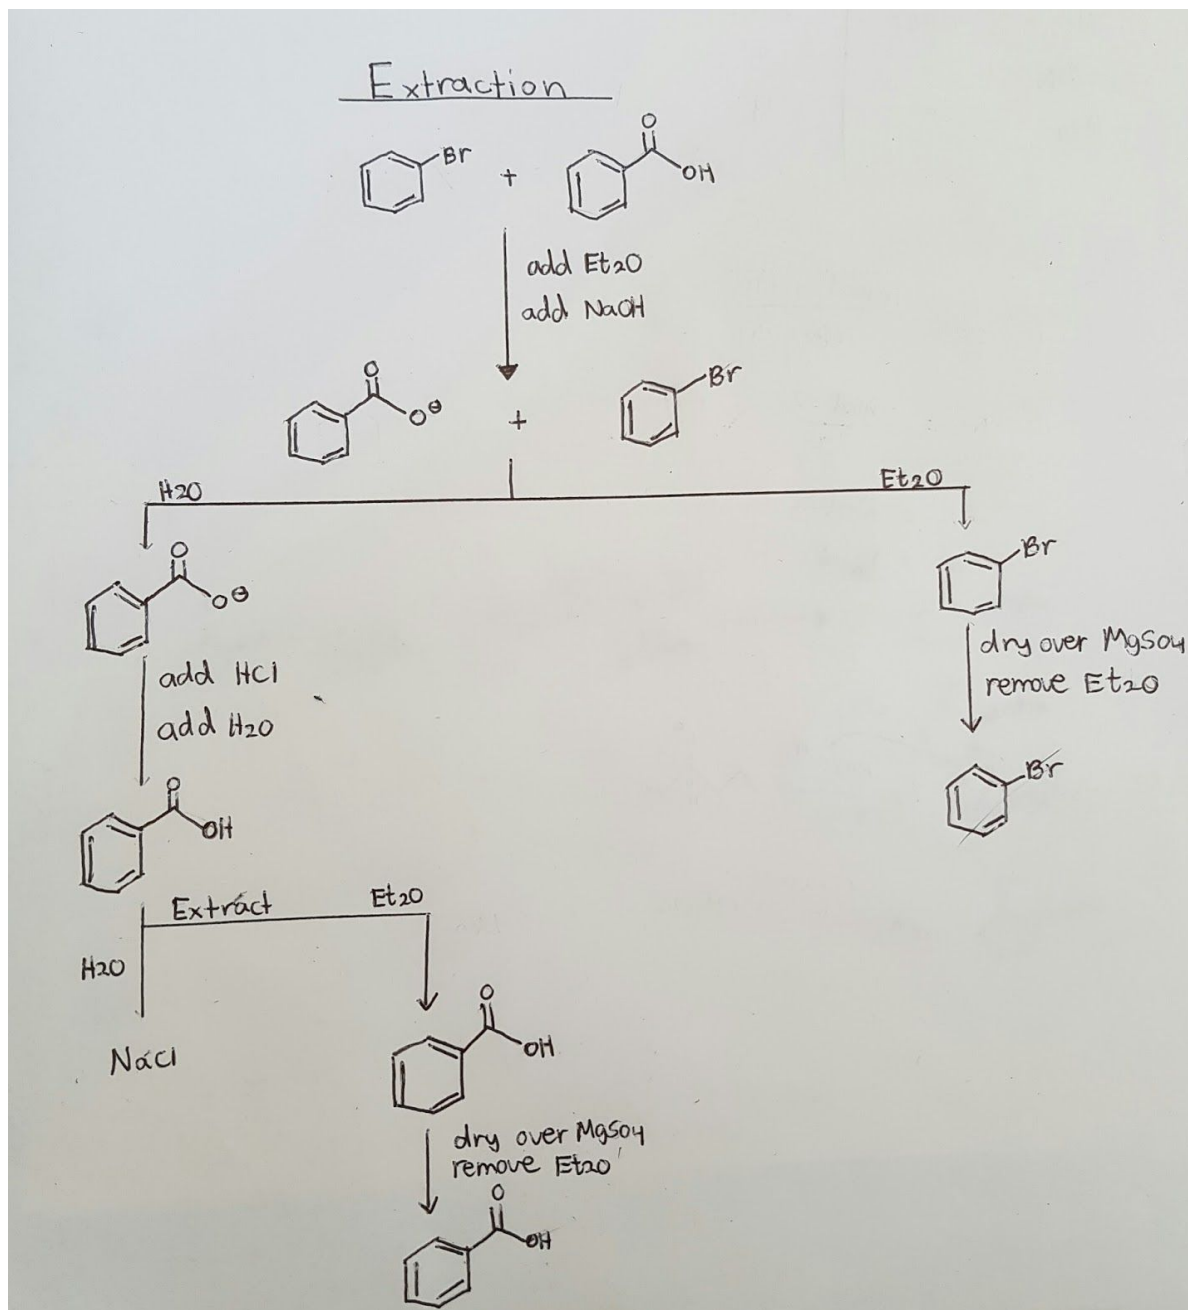 Extraction
Br + O OH
add Et2O
add NaOH
O O⊖ + Br
H2O Et2O
O O⊖
Br
add HCl
add H2O
dry over MgSO4
remove Et2O
O OH
Br
Extract Et2O
H2O
NaCl
O OH
dry over MgSO4
remove Et2O
O OH